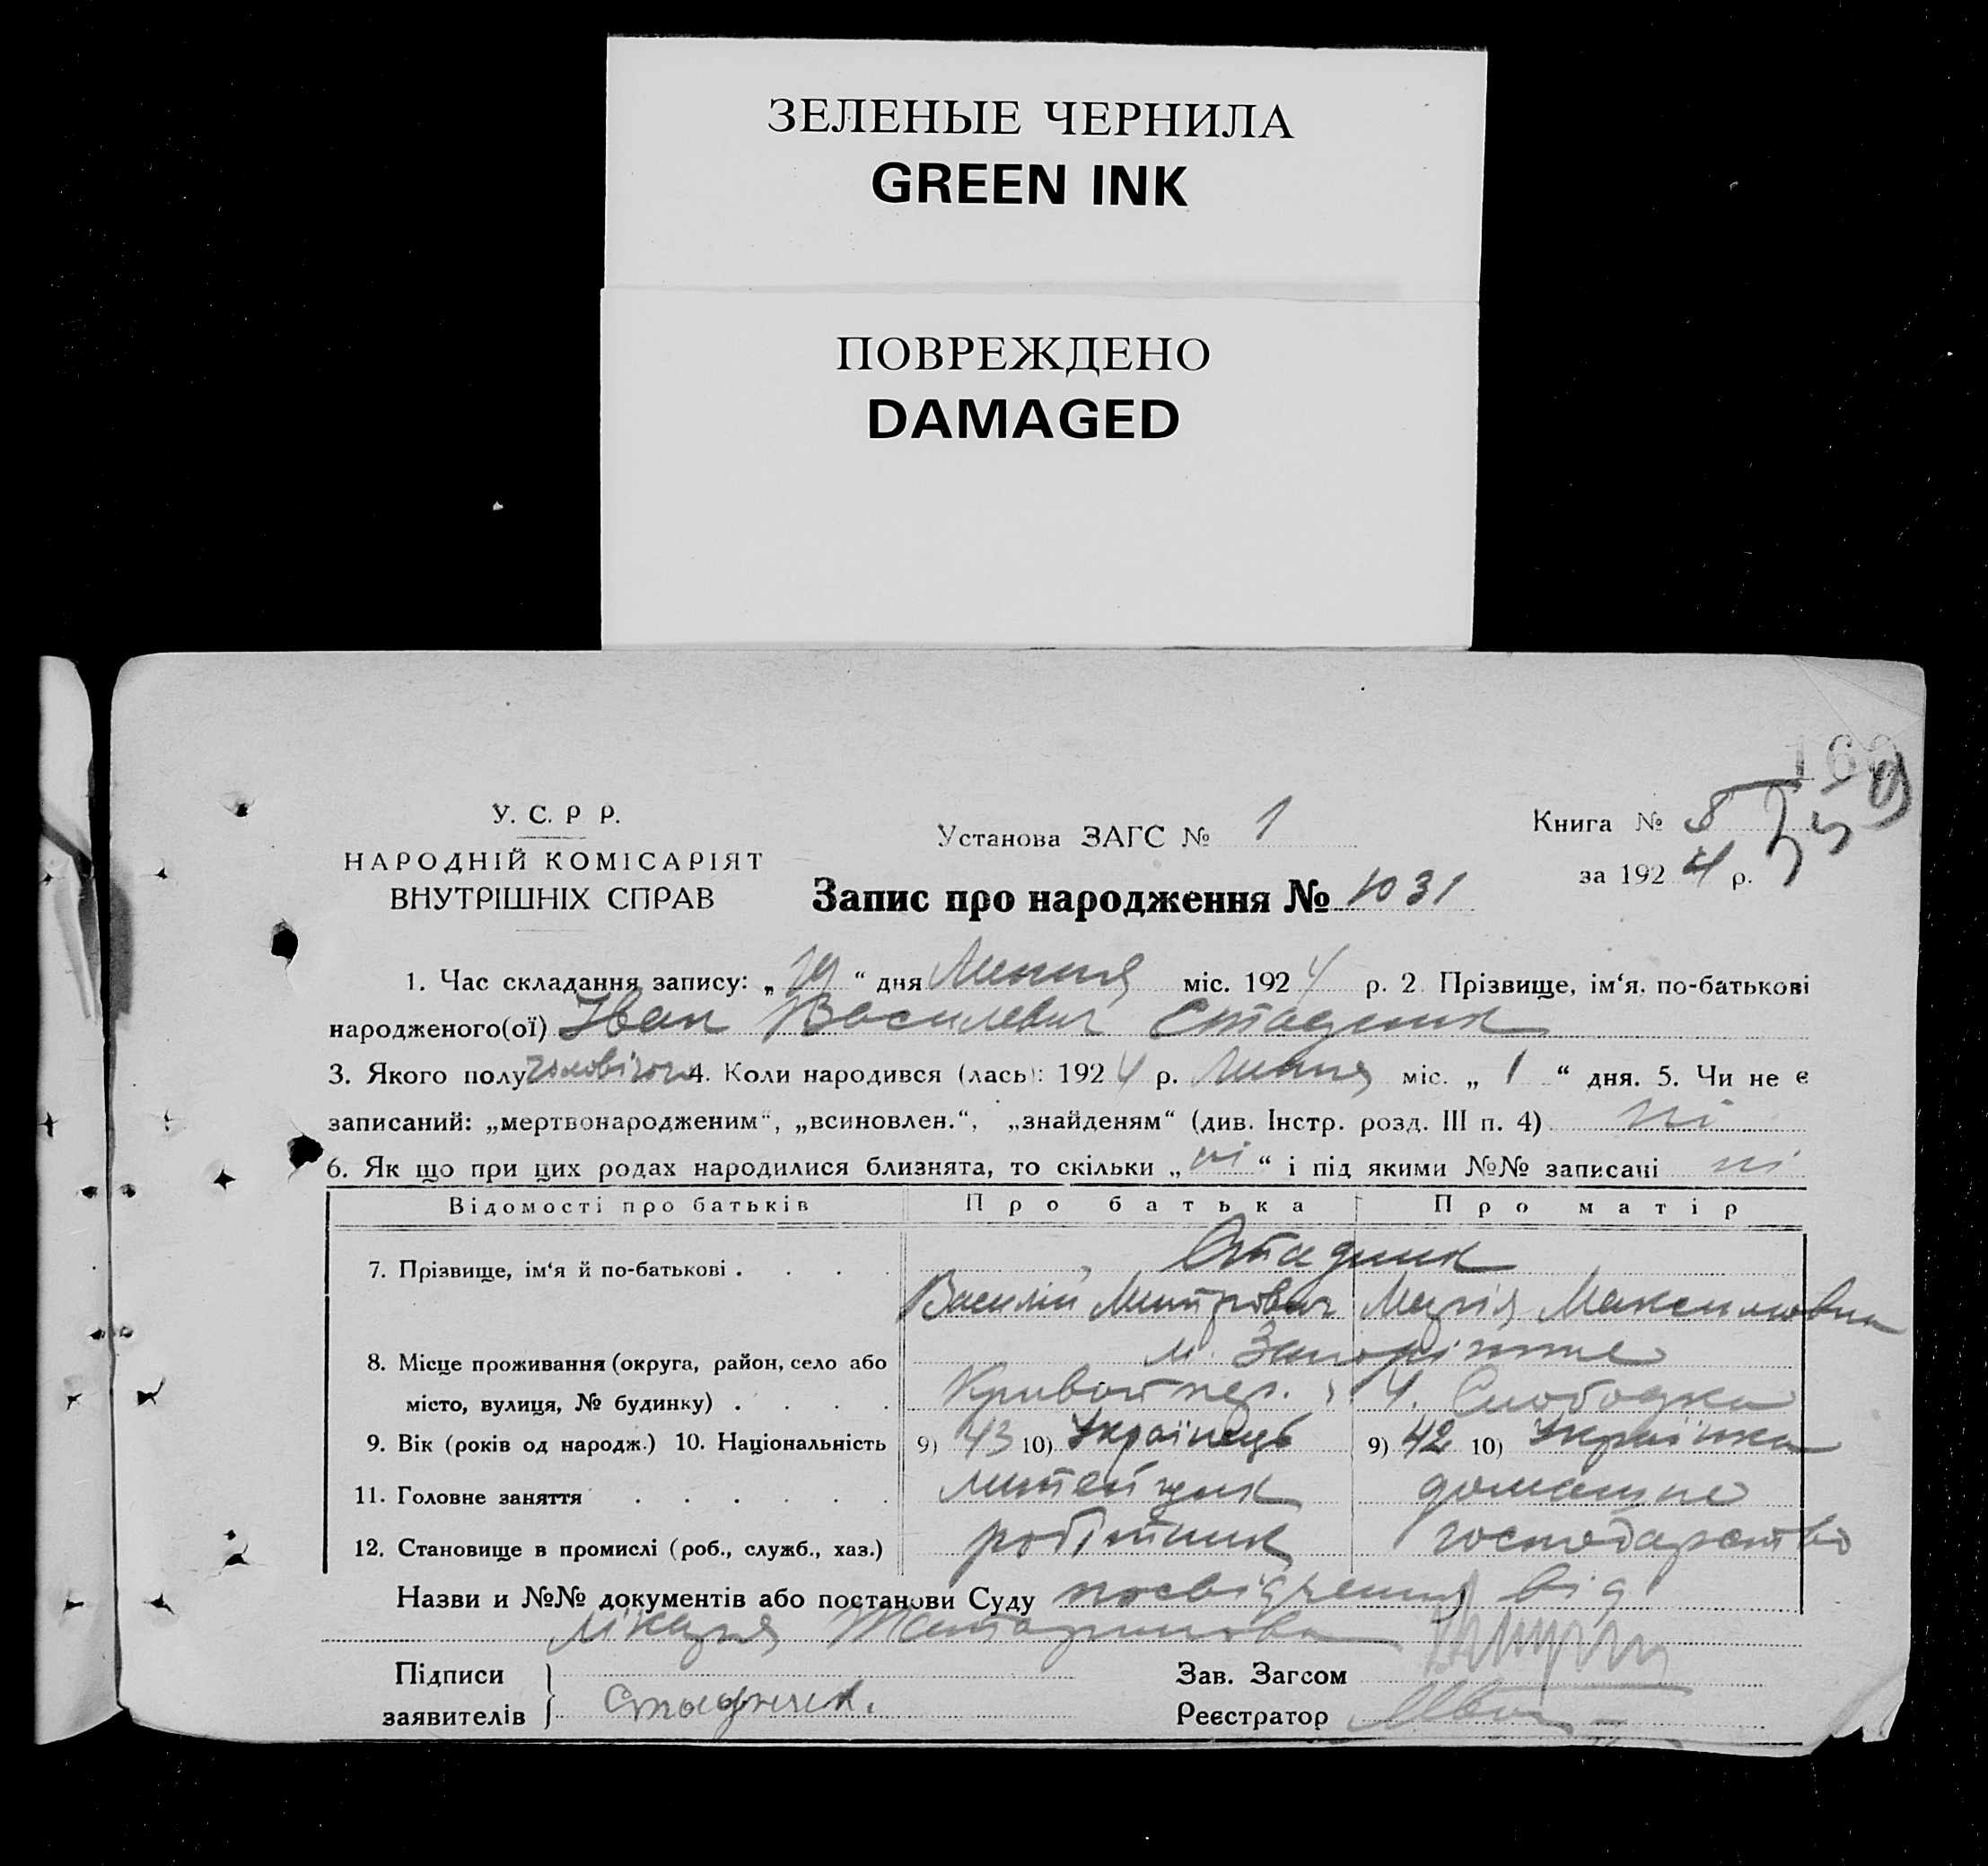 ЗЕЛЕНЫЕ ЧЕРНИЛА
GREEN INK
ПОВРЕЖДЕНО
DAMAGED
У. С. Р Р.
НАРОДНІЙ КОМІСАРІЯТ
ВНУТРІШНІХ СПРАВ
Установа ЗАГС № 1
Запис про народження № 1031
Книга № 8
за 1924 р.
1. Час складання запису: „19“ дня Липня міс. 1924 р. 2. Прізвище, ім‘я, по-батькові
народженого(ої) Іван Василевич Стадник
3. Якого полу чоловічого 4. Коли народився (лась): 1924 р. Липня міс. „1“ дня. 5. Чи не є
записаний: „мертвонародженим“, „всиновлен.“, „знайденям“ (див. Інстр. розд. III п. 4) ні
6. Як що при цих родах народилися близнята, то скільки „ні“ і під якими №№ записані ні
Відомості про батьків Про батька Про матір
7. Прізвище, ім‘я й по-батькові . . . . Стадник
Василій Митрович Марія Максимовна
8. Місце проживання (округа, район, село або м. Запоріжже
місто, вулиця, № будинку) . . . . Кривой пер. 4. Слободка
9. Вік (років од народж.) 10. Національність 9) 43 10) Українець 9) 42 10) Українка
11. Головне заняття . . . . . . литейщик домашне
12. Становище в промислі (роб., служб., хаз.) робітник господарство
Назви и №№ документів або постанови Суду посвідчення від
лікаря
Підписи
заявителів Стадник.
Зав. Загсом
Реєстратор